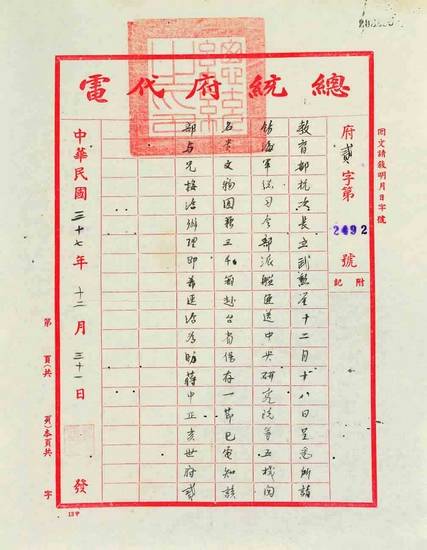 總統府代電
總統之印
回文請敘明月日字號
府貳字第2492號
附記
教育部杭次長立武勳鑒十二月十八日呈悉所請
飭海軍總司令部派艦運送中央研究院等五機関
名貴文物図籍三箱赴台省保存一節已電知該
部与兄接洽辦理即希逕洽為盼蔣中正亥世府貳
中華民國三十七年十二月三十一日發
第頁(共頁)本頁共字